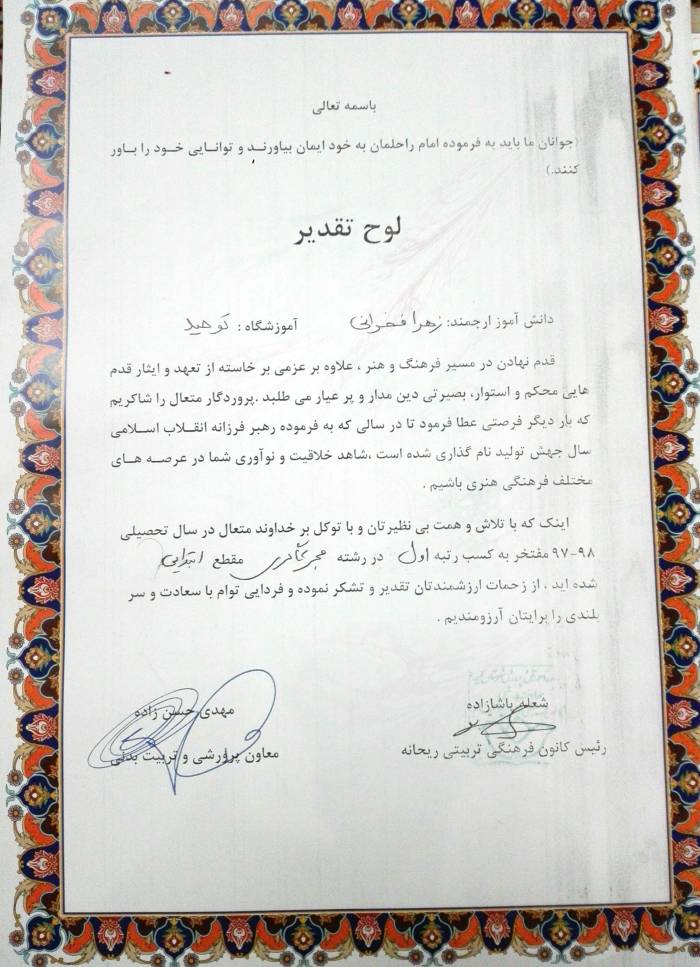 باسمه تعالی
(جوانان ما باید به فرموده امام راحلمان به خود ایمان بیاورند و توانایی خود را باور
کنند.)
لوح تقدیر
دانش آموز ارجمند: زهرا فخرانی آموزشگاه : توحید
قدم نهادن در مسیر فرهنگ و هنر ، علاوه بر عزمی بر خاسته از تعهد و ایثار قدم
هایی محکم و استوار، بصیرتی دین مدار و پر عیار می طلبد .پروردگار متعال را شاکریم
که بار دیگر فرصتی عطا فرمود تا در سالی که به فرموده رهبر فرزانه انقلاب اسلامی
سال جهش تولید نام گذاری شده است ،شاهد خلاقیت و نوآوری شما در عرصه های
مختلف فرهنگی هنری باشیم .
اینک که با تلاش و همت بی نظیرتان و با توکل بر خداوند متعال در سال تحصیلی
۹۷-۹۸ مفتخر به کسب رتبه اول در رشته مجری‌گری مقطع ابتدایی
شده اید ، از زحمات ارزشمندتان تقدیر و تشکر نموده و فردایی توام با سعادت و سر
بلندی را برایتان آرزومندیم .
شعله پاشازاده
مهدی حسن زاده
رئیس کانون فرهنگی تربیتی ریحانه
معاون پرورشی و تربیت بدنی